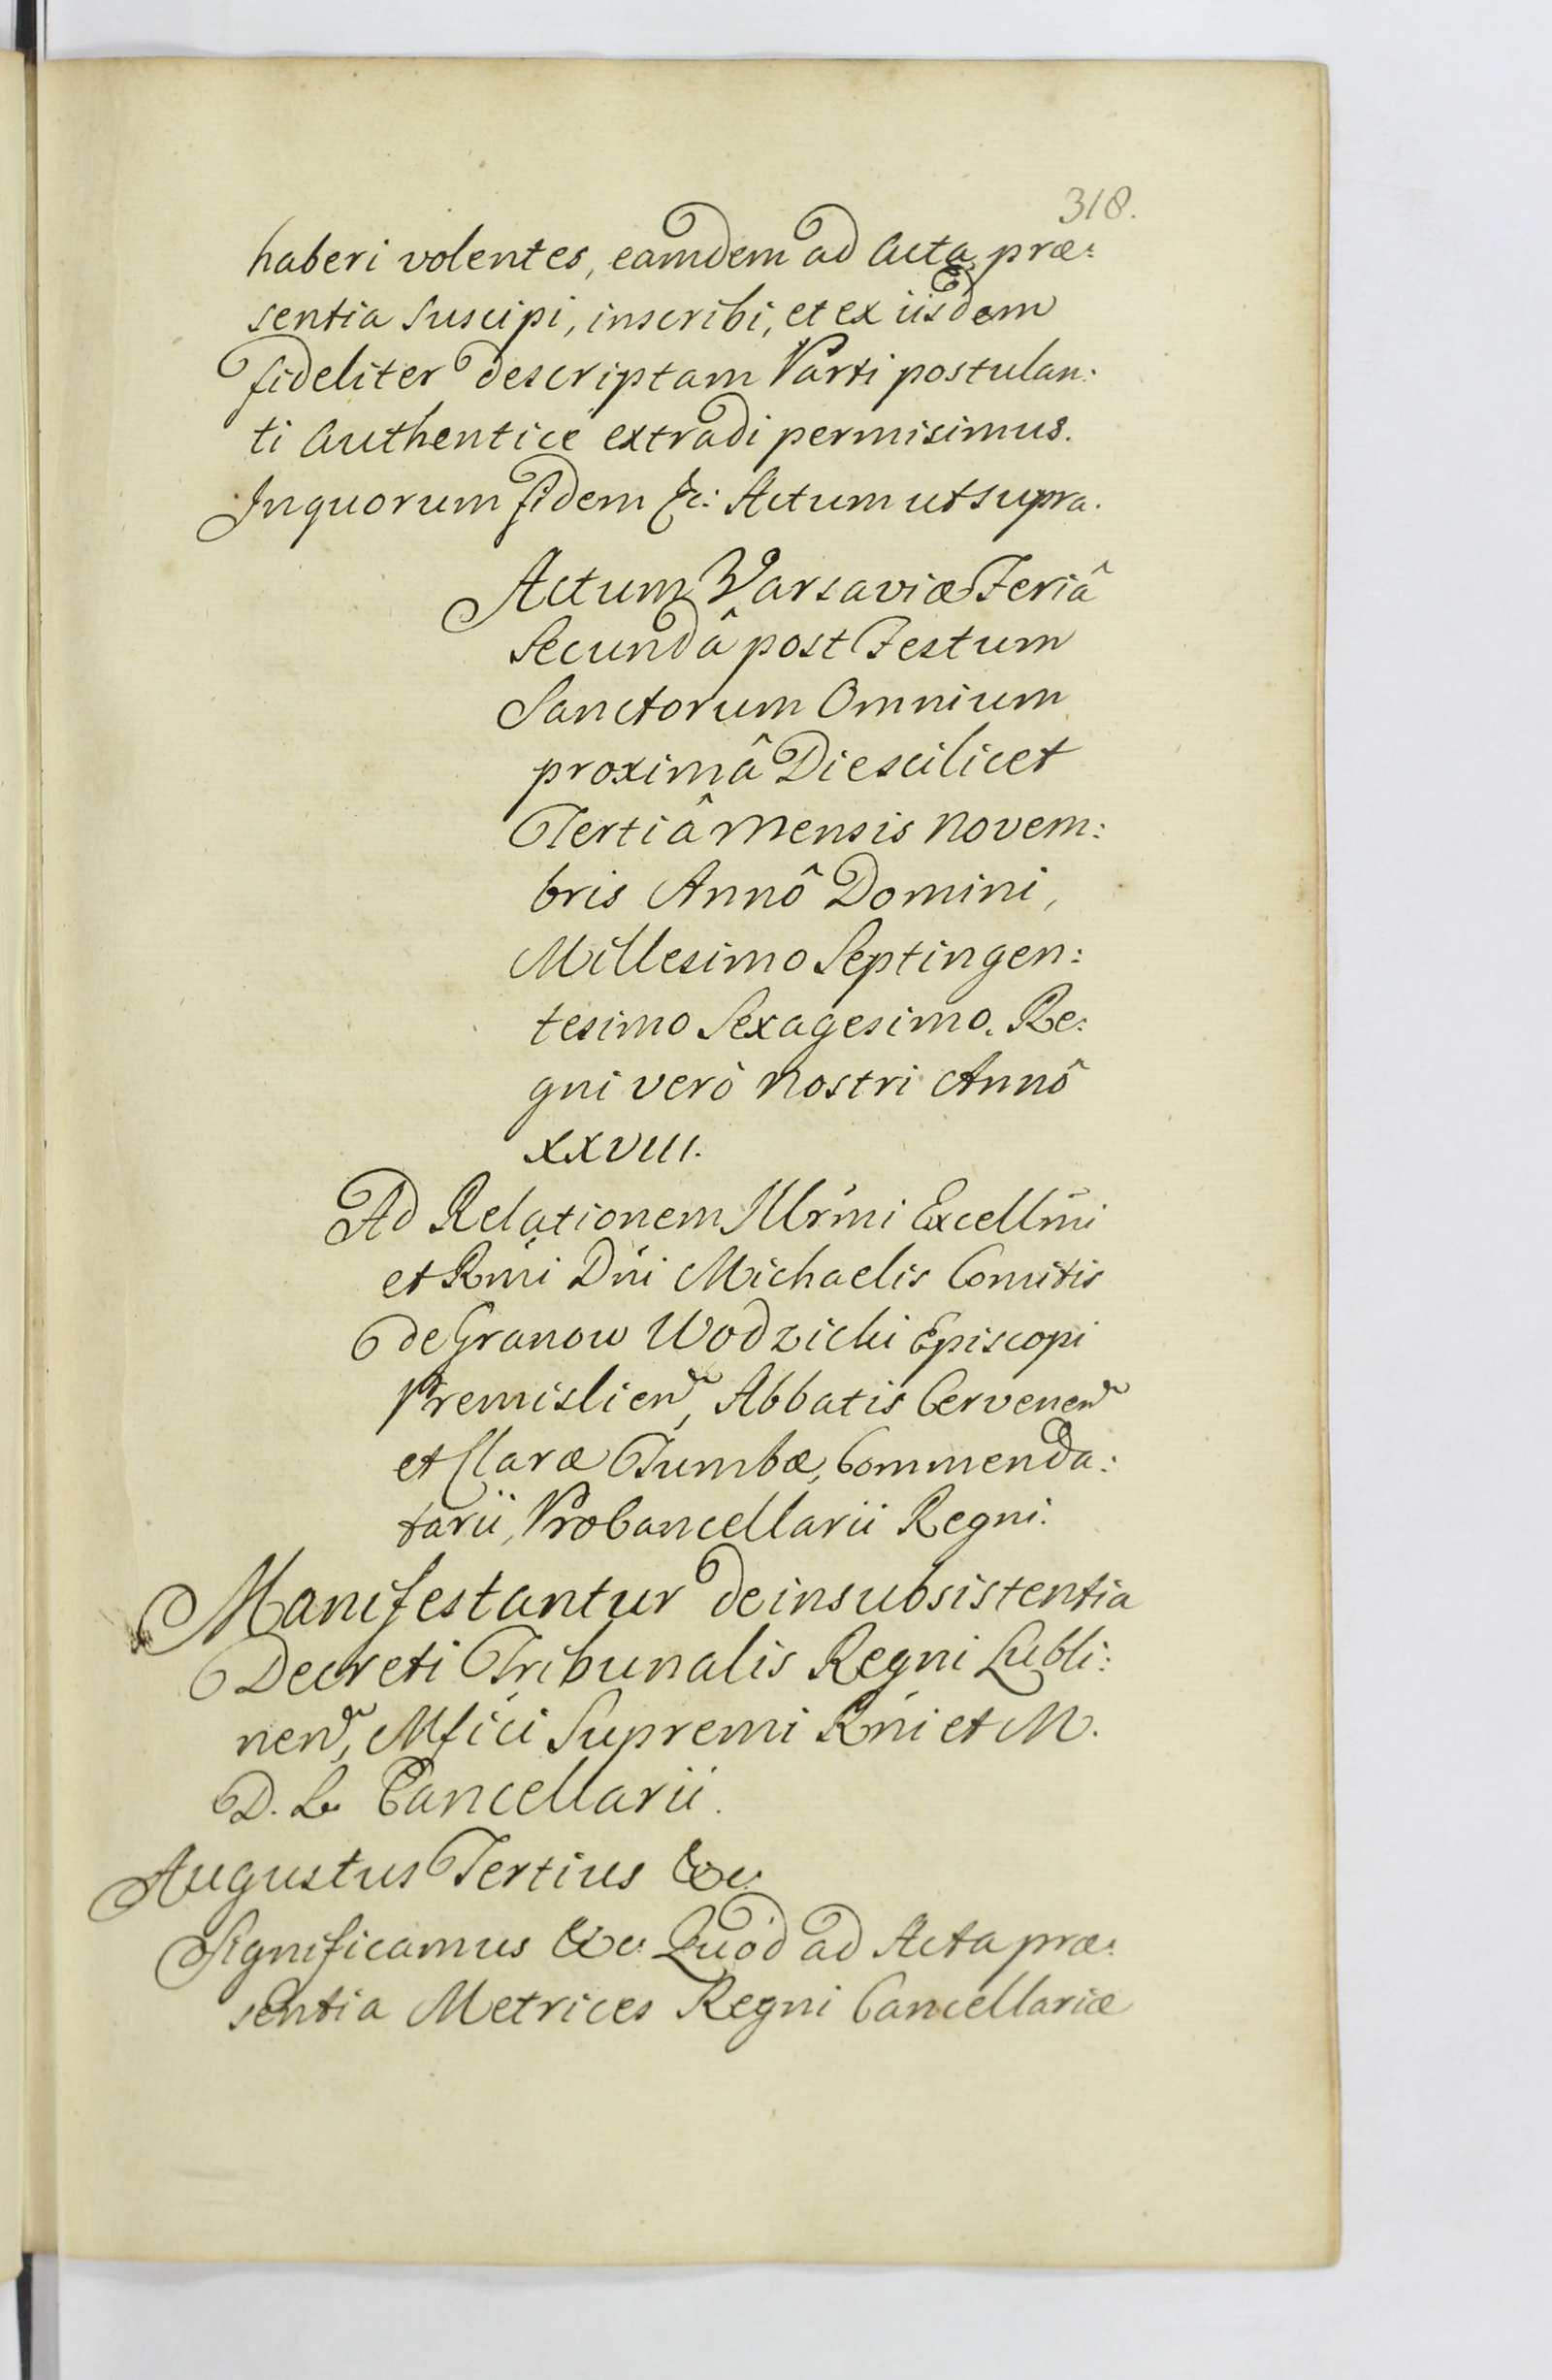 318.
haberi volentes, eamdem ad Acta præ:
sentia suscipi, inscribi, et ex iisdem
fideliter descriptam Parti postulan:
ti Authentice extradi permisimus.
In quorum fidem &c: Actum ut supra.
Actum Varsaviæ Feriâ
Secundâ post Festum
Sanctorum Omnium
proximâ Die scilicet
Tertiâ Mensis Novem:
bris Annô Domini,
Millesimo Septingen:
tesimo Sexagesimo. Re:
gni verò Nostri Annô
XXVIII.
Ad Relationem Illrm̃i Excellm̃i
et Rm̃i Dñi Michaelis Comitis
de Granow Wodzicki Episcopi
Premislien, Abbatis Cervenen
et Claræ Tumbæ, Commenda:
tarii, ProCancellarii Regni.
Manifestantur de insubsistentia
Decreti Tribunalis Regni Lubli:
nen, Mfici Supremi Rñi et M.
D. L. Cancellarii.
Augustus Tertius &c.
Significamus &c: Quòd ad Acta præ:
sentia Metrices Regni Cancellariæ